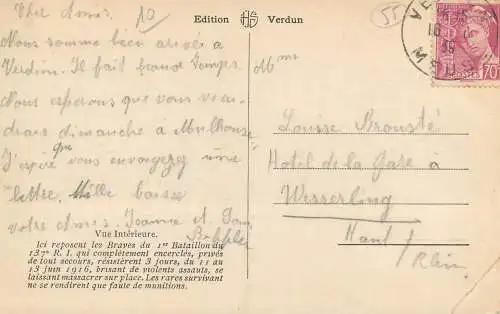 Cher Amis.
Nous somme bien arrivé à
Verdun. Il fait beaux Temps.
Nous esperons que vous viendrais dimanche à Mulhouse
J'espère que vous envoyerez une
lettre. Mille baiser
votre Amis. Jeanne et
Edition HS Verdun
55
VERDUN
POSTES
70
Mme
Louise Brousté
Hotel de la Gare à
Wesserling
Haut /
Rhin
Vue Intérieure.
Ici reposent les Braves du 1er Bataillon du
137e R. I. qui complètement encerclés, privés
de tout secours, résistèrent 3 jours, du 11 au
13 juin 1916, brisant de violents assauts, se
laissant massacrer sur place. Les rares survivants
ne se rendirent que faute de munitions.